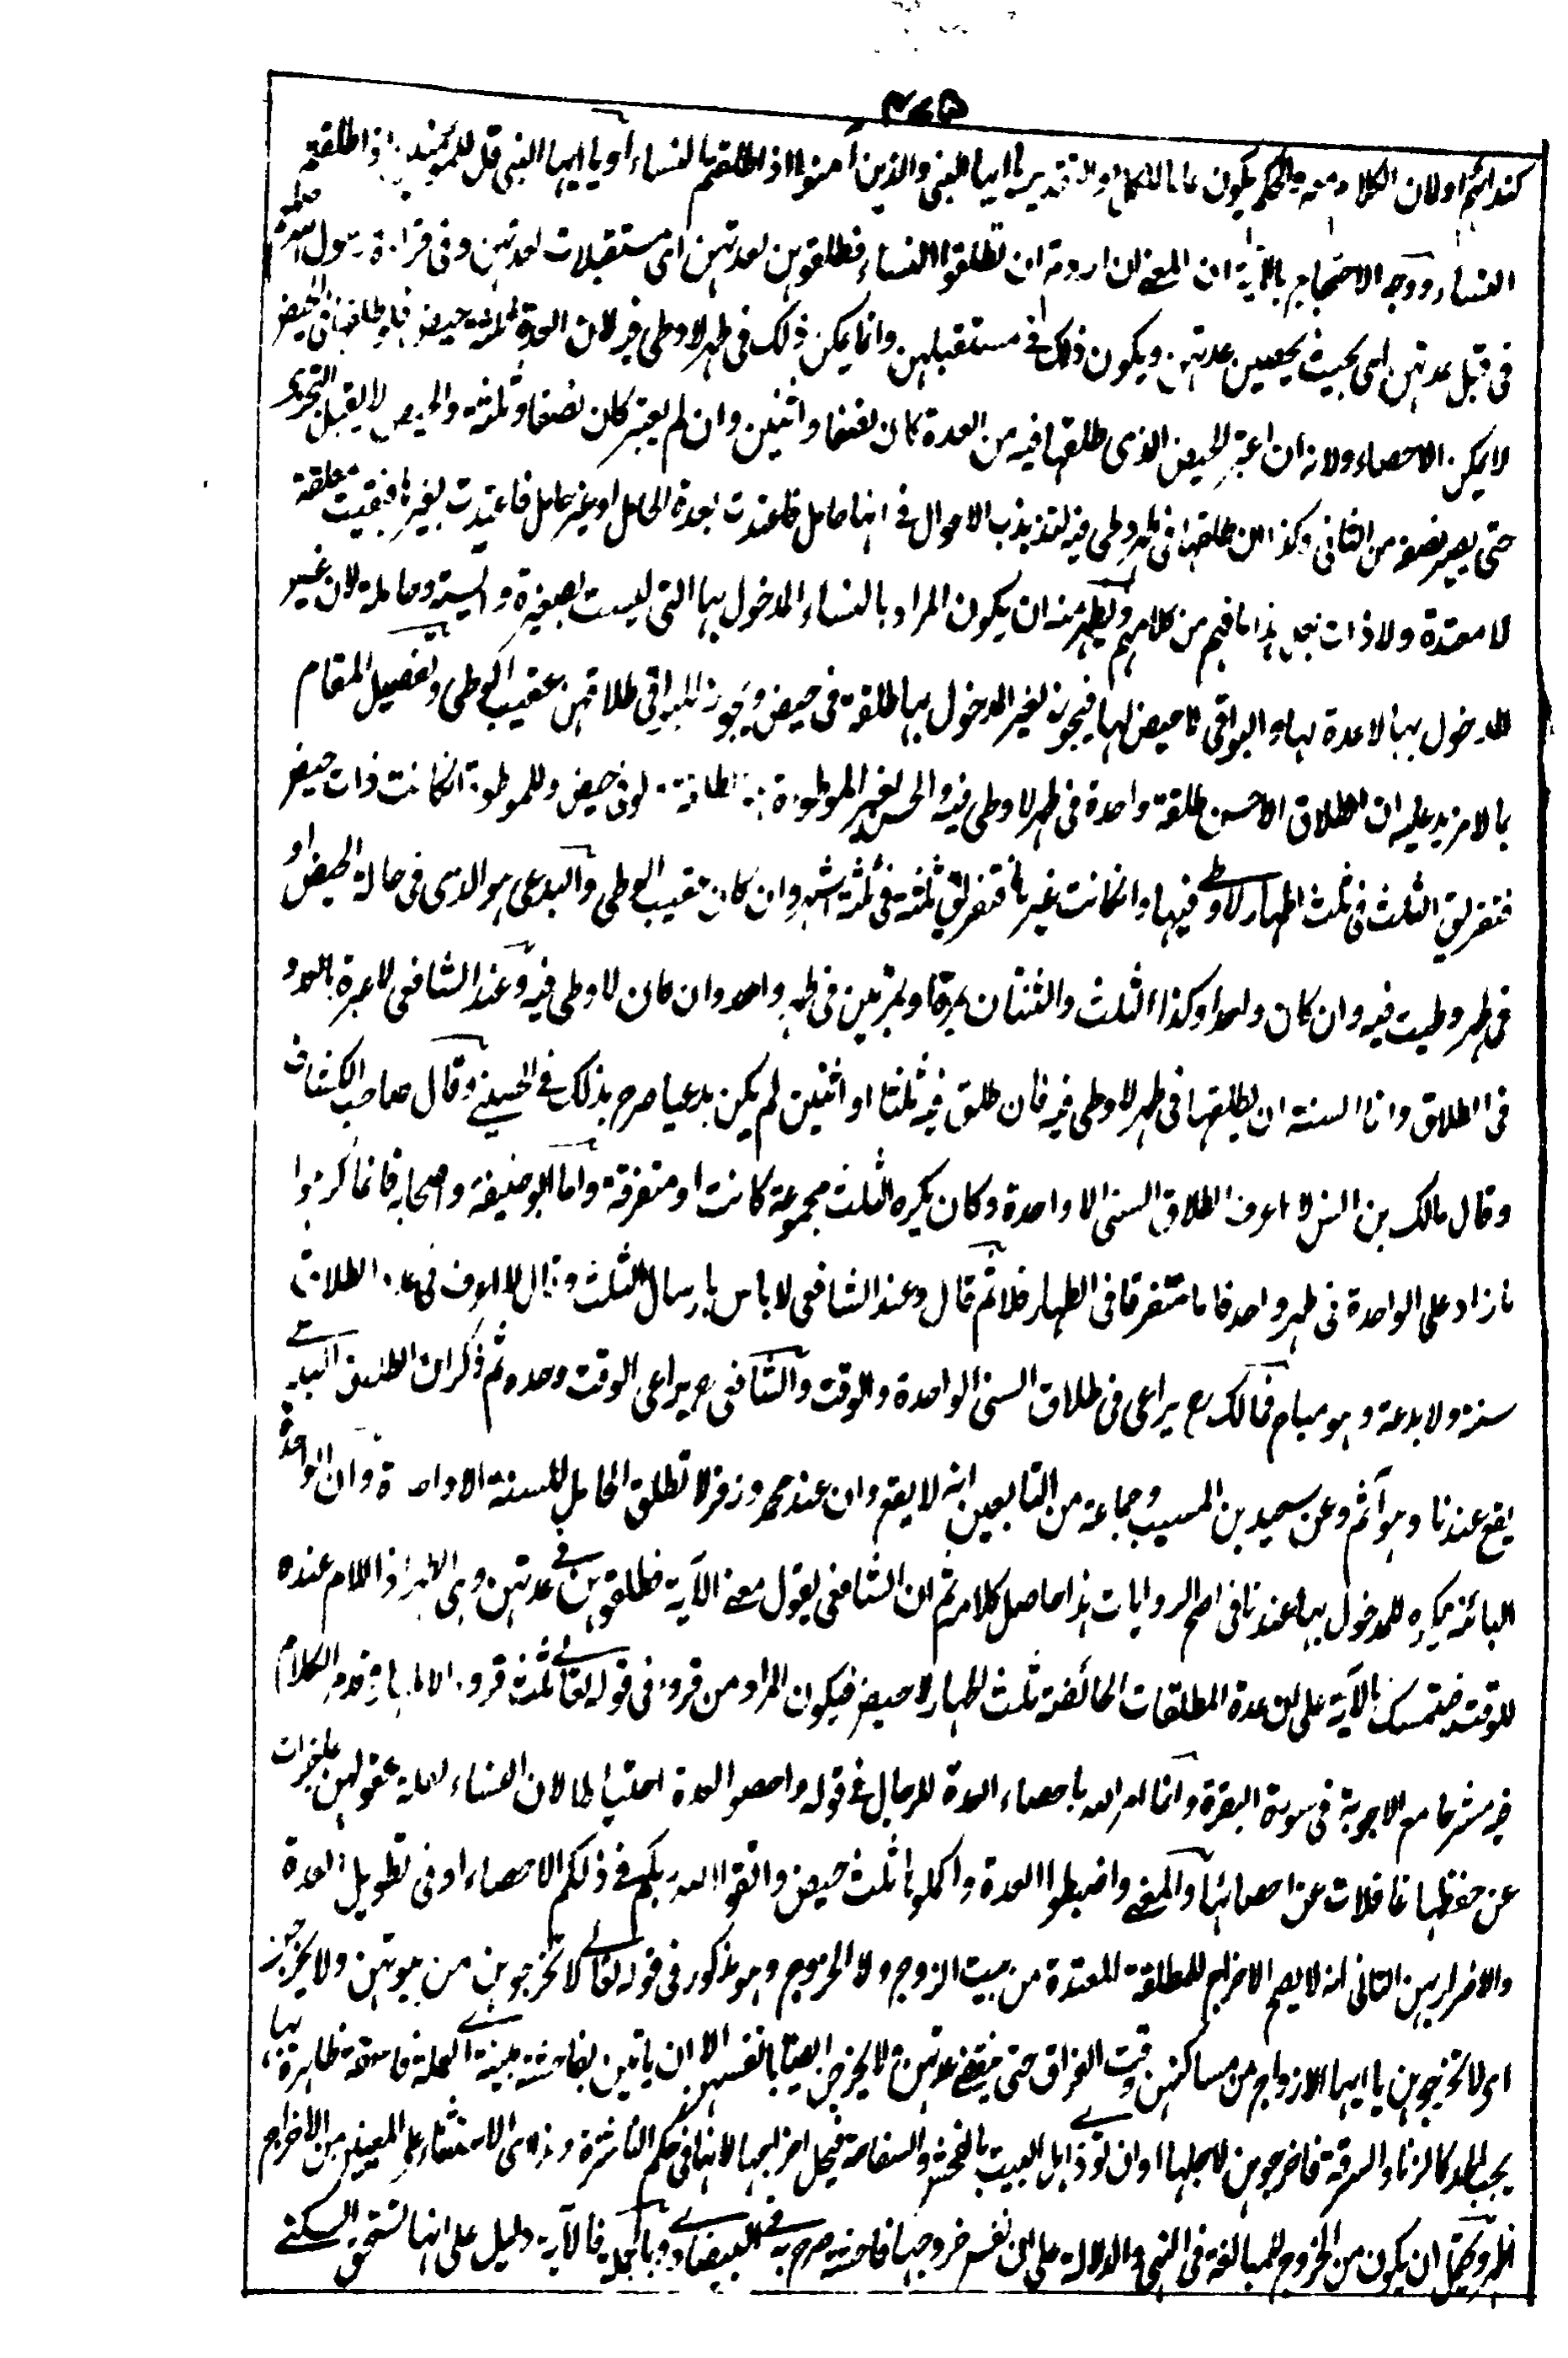 ٤٧٥
كندائهم اولان الكلام معه والحكم يكون عاما للكل او التقدير يا ايها النبي والذين آمنوا اذا طلقتم النساء او يا ايها النبي قل للمؤمنين اذا طلقتم
النساء ووجه الاحتجاج بالآية ان المعنى ان اردتم ان تطلقوا النساء فطلقوهن لعدتهن اى مستقبلات لعدتهن وفى قراءة رسول الله صلعم
فى قبل عدتهن اى بحيث يحصين عدتهن ويكون ذلك فى مستقبلهن وانما يمكن ذلك فى طهر لا وطى فيه لان العدة ثلثة حيض فلو طلقها فى الحيض
لا يمكن الاحصاء ولانه ان اعتبر الحيض الذى طلقها فيه من العدة كان نصفا واثنين وان لم يعتبر كان نصفا وثلثة والحيض لا يقبل التجزى
حتى يصير نصفه من الثانى وكذا ان طلقها فى طهر وطى فيه لتذبذب الاحوال فى انها حامل فاعتدت بعدة الحامل او غير حامل فاعتدت بغيرها فبقيت معلقة
لا معتدة ولا ذات بعل هذا ما فهم من كلامهم ويظهر منه ان يكون المراد بالنساء المدخول بها التى ليست بصغيرة وآيسة وحاملة لان غير
المدخول بها لا عدة لها والبواقى لا حيض لها فيجوز لغير المدخول بها طلقة فى حيض ويجوز للبواقى طلاقهن عقيب الوطى وتفصيل المقام
بما لا مزيد عليه ان الطلاق الاحسن طلقة واحدة فى طهر لا وطى فيه والحسن لغير الموطوءة طلقة ولو فى حيض وللموطوءة ان كانت ذات حيض
فتفريق الثلث فى ثلث اطهار لا وطى فيها وان كانت غيرها فتفريق ثلثة فى ثلثة اشهر وان كان عقيب الوطى والبدعى هو الذى فى حالة الحيض او
فى طهر وطيت فيه وان كان واحدا وكذا الثلث والثنتان بمرة او بمرتين فى طهر واحد وان كان لا وطى فيه وعند الشافعى لا عبرة بالعدد
فى الطلاق وانما السنة ان يطلقها فى طهر لا وطى فيه فان طلق فيه ثلثا او اثنين لم يكن بدعيا صرح بذلك فى الحسينى وقال صاحب الكشاف
وقال مالك بن انس لا اعرف الطلاق السنى الا واحدة وكان يكره الثلث مجموعة كانت او متفرقة واما ابو حنيفة واصحابه فانما كرهوا
ما زاد على الواحدة فى طهر واحد فاما متفرقا فى الطهار فلا ثم قال وعند الشافعى لا باس بارسال الثلث وقال لا اعرف فى عدد الطلاق
سنة ولا بدعة وهو مباح فمالك رح يراعى فى طلاق السنى الواحدة والوقت والشافعى رح يراعى الوقت وحده ثم ذكر ان الطلاق البدعى
يقع عندنا وهو آثم وعن سعيد بن المسيب وجماعة من التابعين انه لا يقع وان عند محمد وزفر لا تطلق الحامل للسنة الا واحدة وان الواحدة
البائنة يكره للمدخول بها عندنا فى اصح الروايات هذا حاصل كلامه ثم ان الشافعى يقول معنى الآية فطلقوهن فى عدتهن وهى الطهر اذ اللام عنده
للوقت فتمسك بالآية على ان عدة المطلقات الحائضة ثلث اطهار لا حيض فيكون المراد من قروء فى قوله تعالى ثلثة قروء الاطهار وقد مر الكلام
فيه مشرحا مع الاجوبة فى سورة البقرة وانما امر الله باحصاء العدة للرجال فى قوله واحصوا العدة احتياطا لان النساء لعلة عقولهن عاجزات
عن حفظها غافلات عن احصائها والمعنى واضبطوا العدة واكملوها ثلث حيض واتقوا الله ربكم فى ذلكم الاحصاء او فى تطويل العدة
والاضرار بهن الثانى انه لا يصح الاخراج للمطلقة المعتدة من بيت الزوج ولا الخروج وهو مذكور فى قوله تعالى لا تخرجوهن من بيوتهن ولا يخرجن
اى لا تخرجوهن يا ايها الازواج من مساكنهن وقت الفراق حتى ينقضى عدتهن ولا يخرجن ايضا بانفسهن الا ان ياتين بفاحشة مبينة اى فعلة فاحشة ظاهرة بها
يجب الحد كالزنا والسرقة فاخرجوهن لاجلها او ان تؤذى اهل البيت بالفحش والسفاهة فيحل اخراجها لانها فى حكم الناشزة وهذا اى الاستثناء على المعنيين من الاخراج
ويحتمل ان يكون من الخروج للمبالغة فى النهى والدلالة على ان نفس خروجها فاحشة صرح به فى البيضاوى وبالجملة فالآية دليل على انها تستحق السكنى